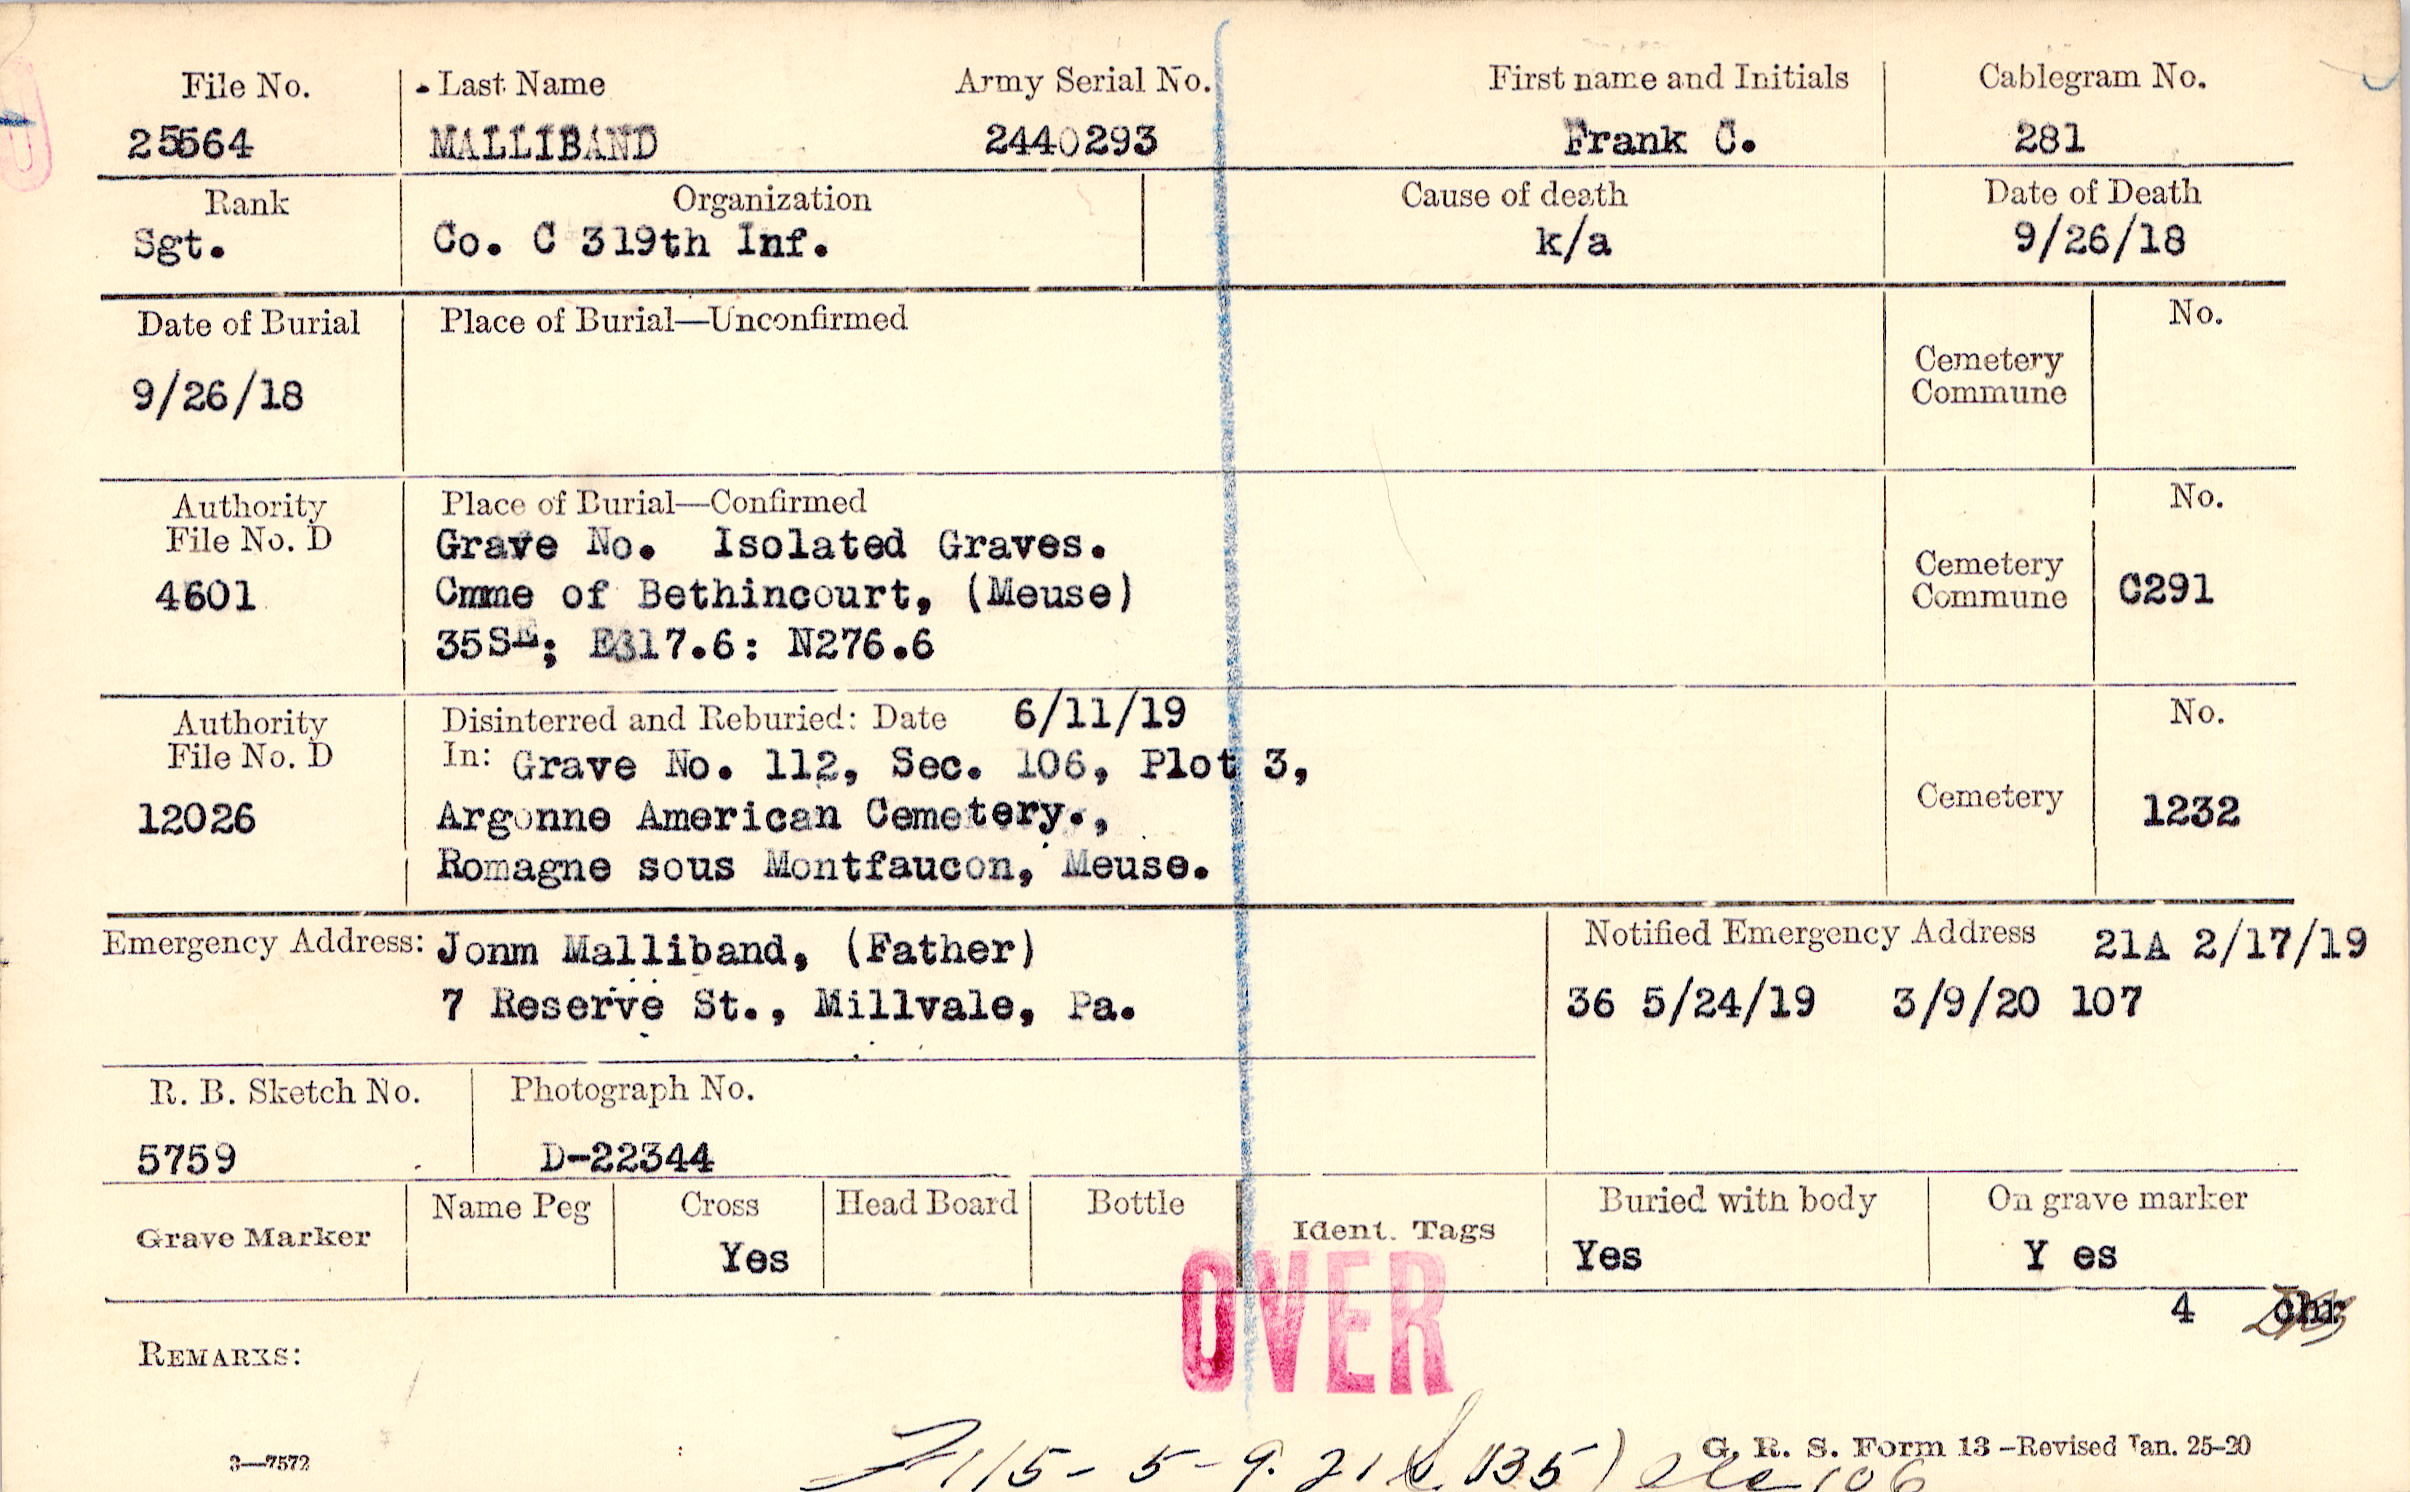 File No. Last Name Army Serial No. First name and Initials Cablegram No.
25564 MALLIBAND 2440293 Frank C. 281
Rank Organization Cause of death Date of Death
Sgt. Co. C 319th Inf. k/a 9/26/18
Date of Burial Place of Burial—Unconfirmed No.
9/26/18
Cemetery
Commune
Authority Place of Burial—Confirmed No.
File No. D Grave No. Isolated Graves.
4601 Cmme of Bethincourt, (Meuse) Cemetery
Commune C291
35SE; E317.6: N276.6
Authority Disinterred and Reburied: Date 6/11/19 No.
File No. D In: Grave No. 112, Sec. 106, Plot 3,
12026 Argonne American Cemetery., Cemetery 1232
Romagne sous Montfaucon, Meuse.
Emergency Address: Jonm Malliband, (Father) Notified Emergency Address 21A 2/17/19
7 Reserve St., Millvale, Pa. 36 5/24/19 3/9/20 107
R. B. Sketch No. Photograph No.
5759 D-22344
Grave Marker Name Peg Cross Head Board Bottle Ident. Tags Buried with body On grave marker
Yes Yes Y es
OVER
4 chr
REMARKS:
115- 5-9.21
3—7572 G. R. S. Form 13—Revised Jan. 25-20